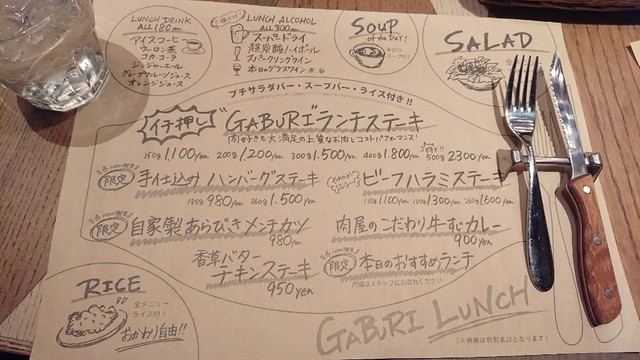 LUNCH DRINK
ALL 180yen
アイスコーヒー
ウーロン茶
コカ・コーラ
ジンジャーエール
グレープフルーツジュース
オレンジジュース
LUNCH ALCOHOL
ALL 300yen
スーパードライ
超炭酸ハイボール
スパークリングワイン
本日のグラスワイン 赤・白
SOUP
of the DAY!
本日の
スープ付!
SALAD
プチサラダバー・スープバー・ライス付き!!
イチ押し
GABURI ランチステーキ
肉好きも大満足の上質なお肉とコストパフォーマンス!
150g 1,100yen 200g 1,200yen 300g 1,500yen 400g 1,800yen 500g 2,300yen
限定
手仕込みハンバーグステーキ
180g 980yen 360g 1,500yen
ビーフハラミステーキ
130g 1,100yen 180g 1,300yen 260g 1,600yen
限定
自家製あらびきメンチカツ
980yen
肉屋のこだわり牛すじカレー
900yen
香草バター
チキンステーキ
950yen
限定
本日のおすすめランチ
内容はスタッフにおたずねください
RICE
全メニュー
ライス付!
おかわり自由!!
GABURI LUNCH
(※価格は税別表記となります)